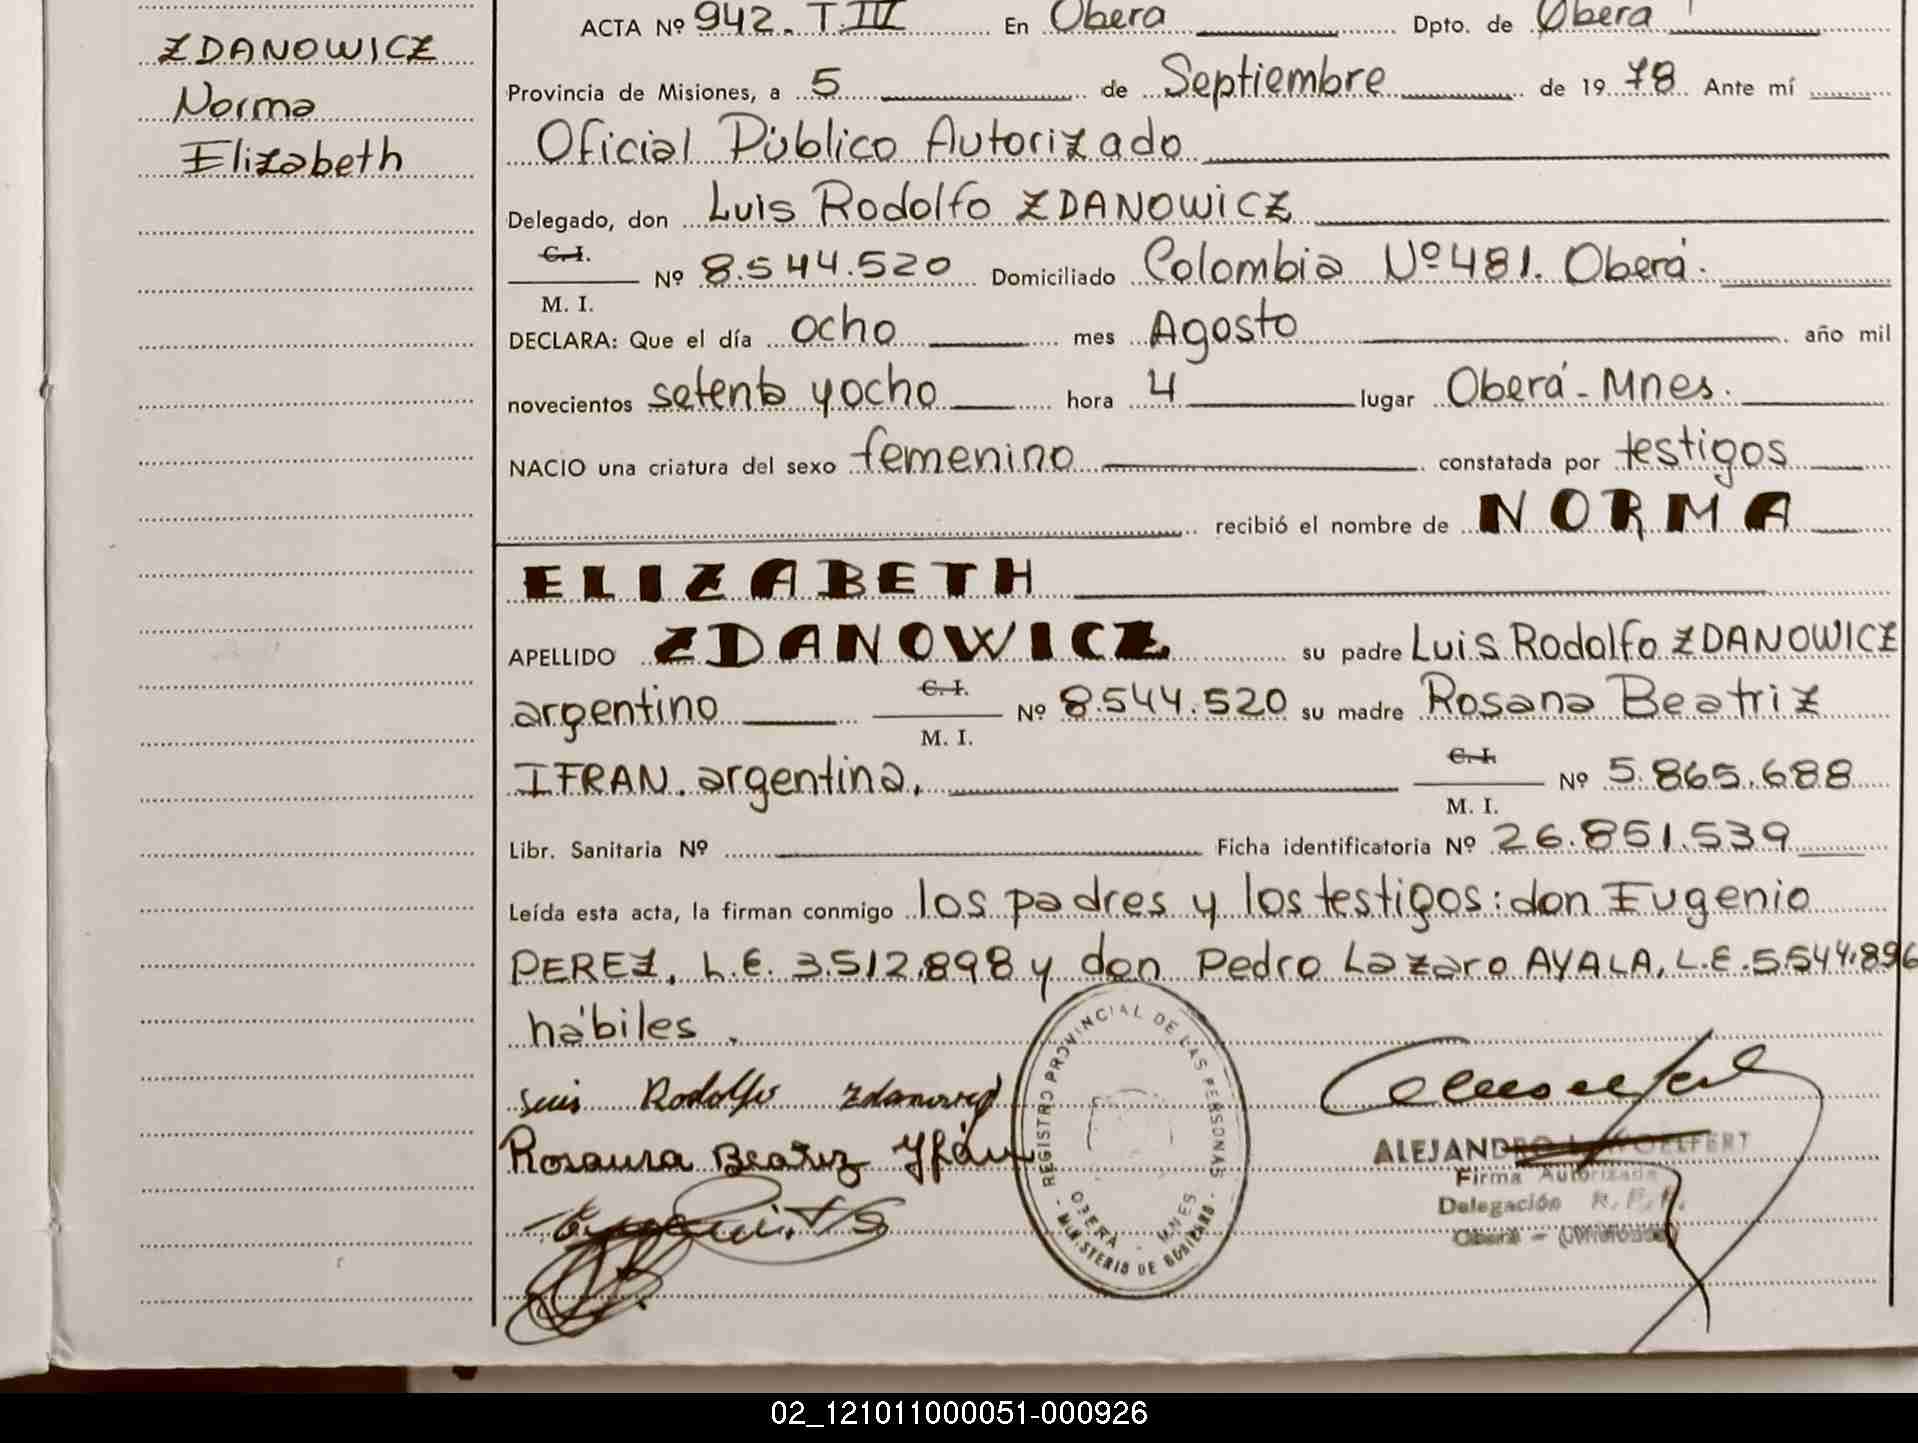 ZDANOWICZ
Norma
Elizabeth
ACTA Nº 942. T.III En Oberá Dpto. de Oberá
Provincia de Misiones, a 5 de Septiembre de 1978 Ante mí
Oficial Público Autorizado
Delegado, don Luis Rodolfo ZDANOWICZ
C.I.
M. I. Nº 8.544.520 Domiciliado Colombia Nº 481. Oberá.
DECLARA: Que el día ocho mes Agosto año mil
novecientos setenta y ocho hora 4 lugar Oberá - Mnes.
NACIO una criatura del sexo femenino constatada por testigos
recibió el nombre de NORMA
ELIZABETH
APELLIDO ZDANOWICZ su padre Luis Rodolfo ZDANOWICZ
argentino C.I. M. I. Nº 8.544.520 su madre Rosana Beatriz
IFRAN. argentina, C.I. M. I. Nº 5.865.688
Libr. Sanitaria Nº Ficha identificatoria Nº 26.851.539
Leída esta acta, la firman conmigo los padres y los testigos: don Eugenio
PEREZ, L.E. 3.512.898 y don Pedro Lazaro AYALA, L.E. 5.544.896
hábiles.
Luis Rodolfo Zdanowicz
Rosaura Beatriz Yfrán
REGISTRO PROVINCIAL DE LAS PERSONAS
OBERÁ - MNES
- MINISTERIO DE GOBIERNO -
ALEJANDRO
Firma Autorizada
Delegación R. P. P.
Oberá - (Misiones)
02_121011000051-000926